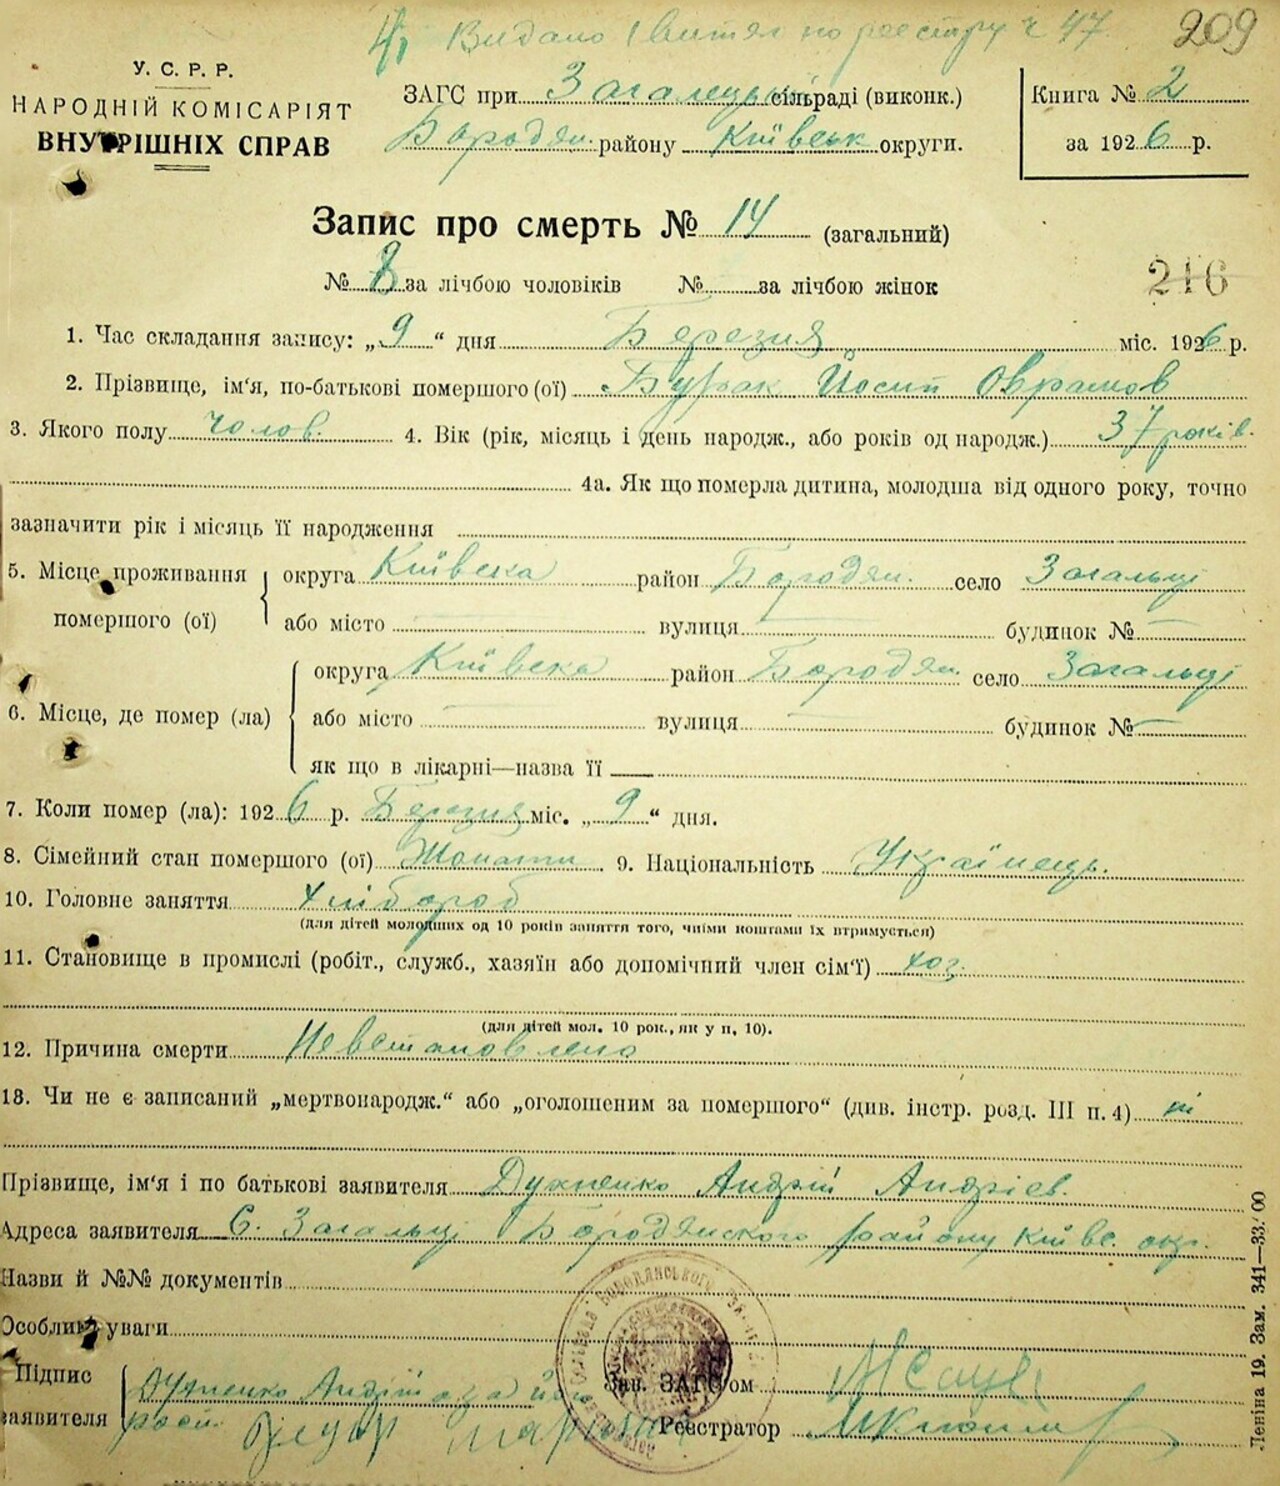 Видано витяг по реєстру ч 47 209
У. С. Р. Р.
НАРОДНІЙ КОМІСАРІЯТ
ВНУТРІШНІХ СПРАВ
ЗАГС при Загалецькій сільраді (виконк.)
Бородян. району Київськ округи.
Книга № 2
за 1926 р.
Запис про смерть № 14 (загальний)
№ 8 за лічбою чоловіків № за лічбою жінок
216
1. Час складання запису: „9“ дня Березня міс. 1926 р.
2. Прізвище, ім'я, по-батькові помершого (ої) Бурак Йосип Оврамов
3. Якого полу чолов. 4. Вік (рік, місяць і день народж., або років од народж.) 37 років.
4а. Як що померла дитина, молодша від одного року, точно
зазначити рік і місяць її народження
5. Місце проживання помершого (ої) округа Київска район Бородян. село Загальці
або місто — вулиця — будинок № —
6. Місце, де помер (ла) округа Київска район Бородян. село Загальці
або місто — вулиця — будинок № —
як що в лікарні—назва її —
7. Коли помер (ла): 1926 р. Березня міс. „9“ дня.
8. Сімейний стан помершого (ої) Жонати 9. Національність Українець.
10. Головне заняття хлібороб
(для дітей молодших од 10 років заняття того, чиїми коштами їх втримується)
11. Становище в промислі (робіт., служб., хазяїн або допомічний член сім'ї) хоз.
(для дітей мол. 10 рок., як у п. 10).
12. Причина смерти Невстановлено
13. Чи не є записаний „мертвонародж.“ або „оголошеним за помершого“ (див. інстр. розд. III п. 4) ні
Прізвище, ім'я і по батькові заявителя Духненко Андрій Андрієв.
Адреса заявителя С. Загальці Бородянского району Київс. окр.
Назви й №№ документів
Особливі уваги
Підпис заявителя Духненко Андрій
Зав. ЗАГС'ом
Реєстратор
Леніна 19. Зам. 341—33.000